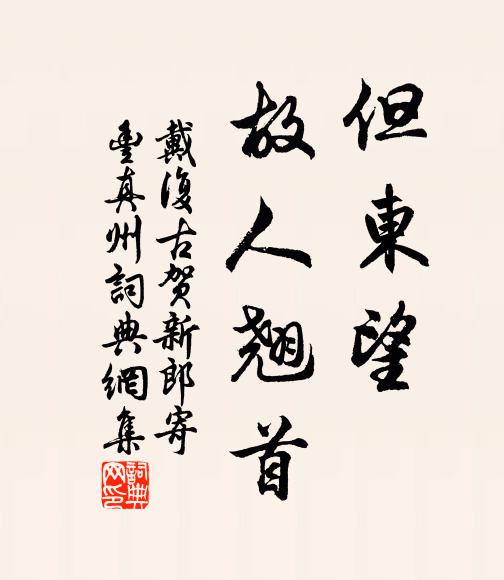 但東望
故人翹首
戴復古賀新郎寄
豐真州詞典網集
詞典
网印